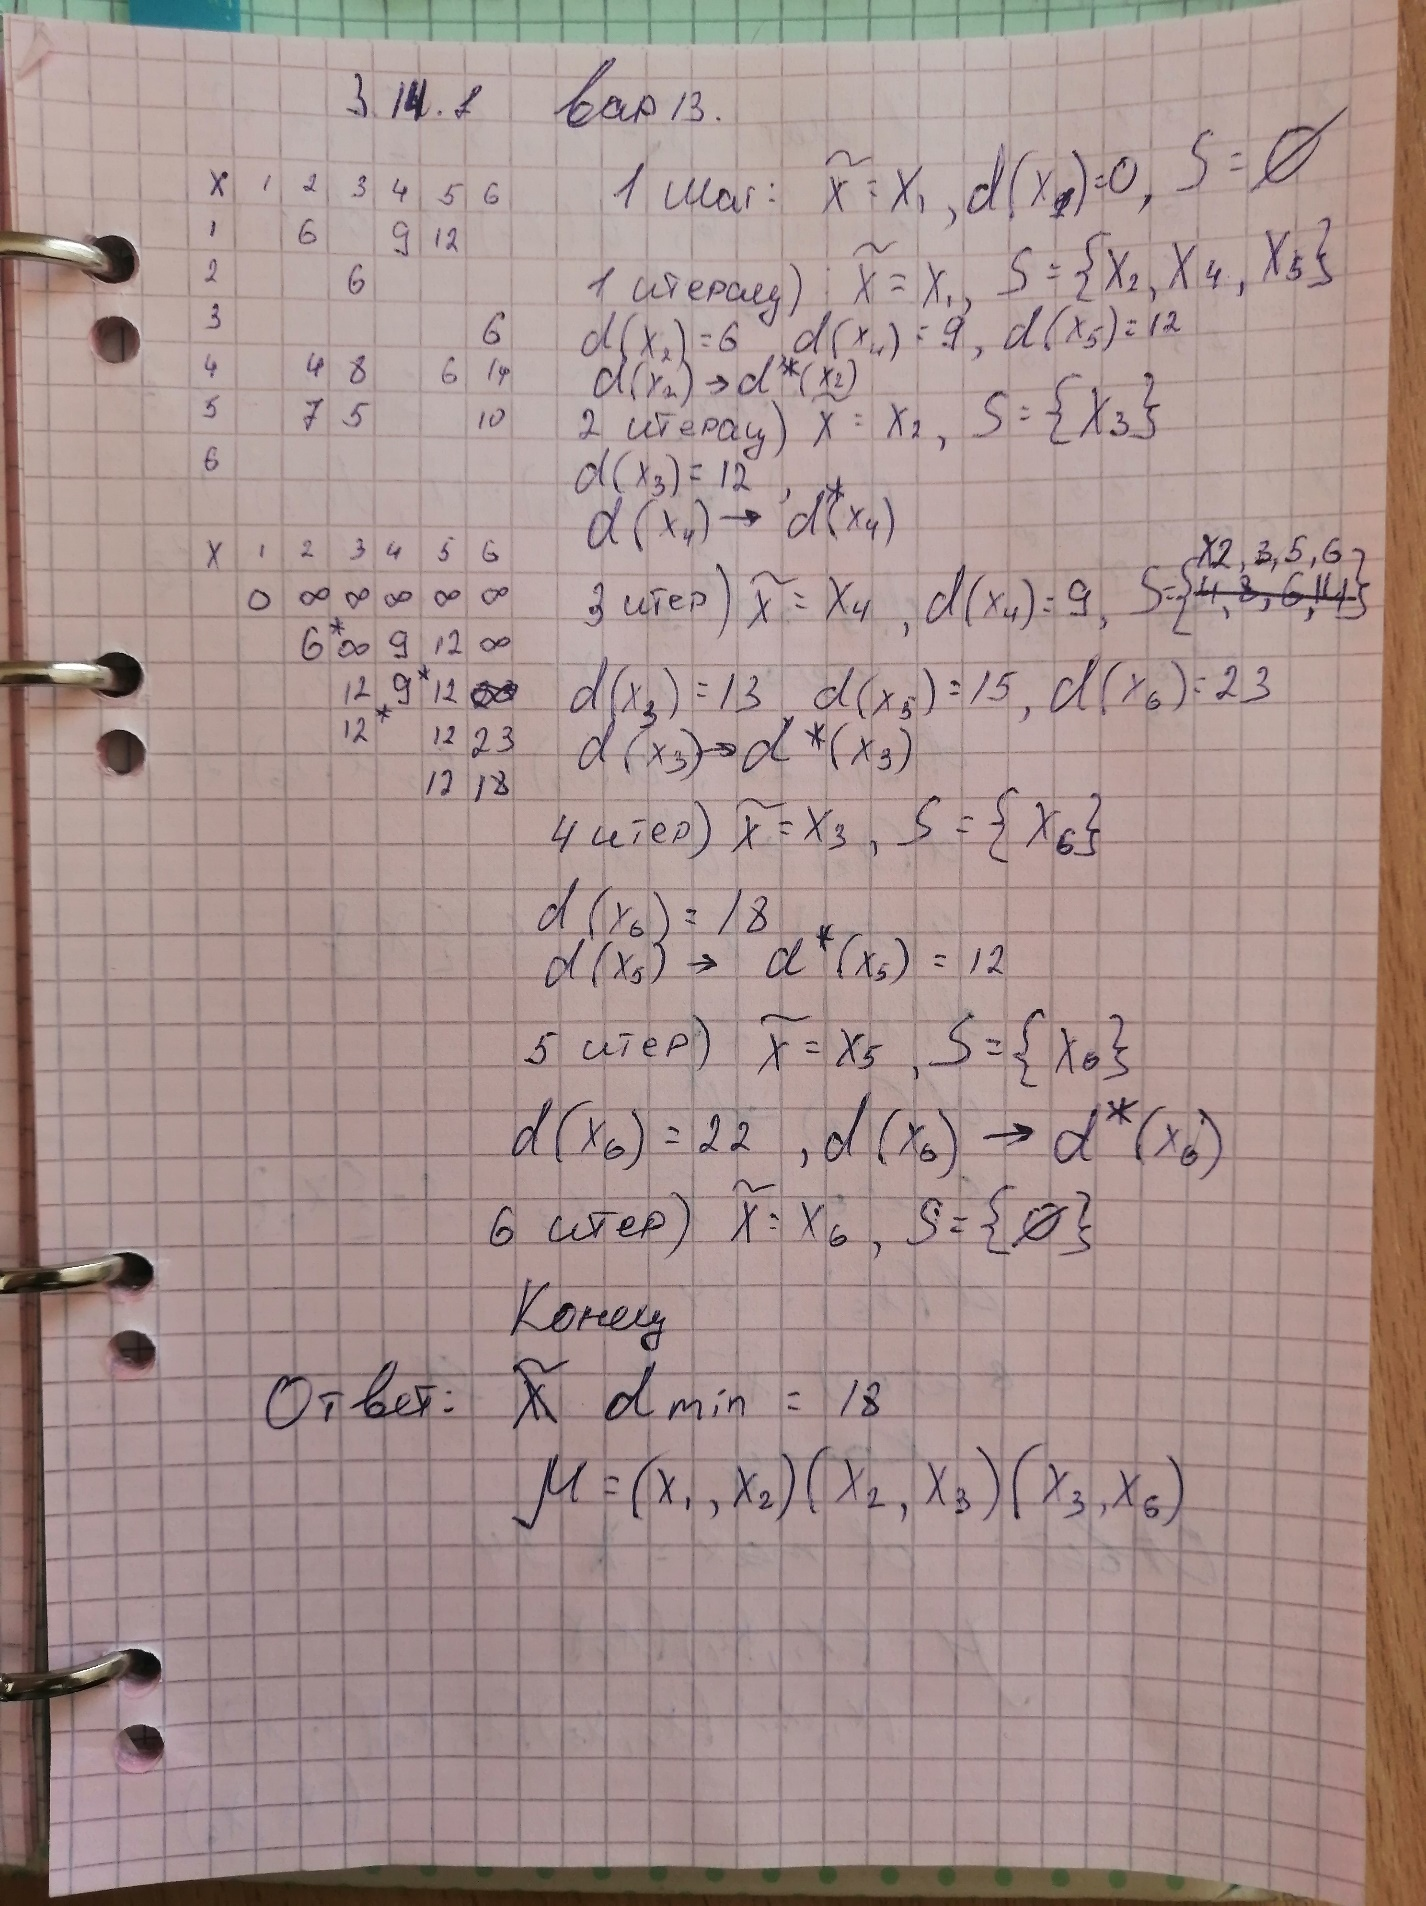 3.14.1 вар 13.
x 1 2 3 4 5 6
1 6 9 12
2 6
3 6
4 4 8 6 14
5 7 5 10
6
x 1 2 3 4 5 6
0 ∞ ∞ ∞ ∞ ∞
6* ∞ 9 12 ∞
12 9* 12 ∞
12* 12 23
12 18
1 шаг: x̃ = x₁, d(x₁)=0, S = ∅
1 итерац) x̃ = x₁, S = {x₂, x₄, x₅}
d(x₂)=6 d(x₄)=9, d(x₅)=12
d(x₂) → d*(x₂)
2 итерац) x̃ = x₂, S = {x₃}
d(x₃)=12,
d(x₄) → d*(x₄)
3 итер) x̃ = x₄, d(x₄)=9, S={x2, 3, 5, 6}
d(x₃)=13 d(x₅)=15, d(x₆)=23
d(x₃) → d*(x₃)
4 итер) x̃ = x₃, S = {x₆}
d(x₆) = 18
d(x₅) → d*(x₅) = 12
5 итер) x̃ = x₅, S = {x₆}
d(x₆) = 22, d(x₆) → d*(x₆)
6 итер) x̃ = x₆, S = {∅}
Конец
Ответ: d min = 18
μ = (x₁, x₂)(x₂, x₃)(x₃, x₆)